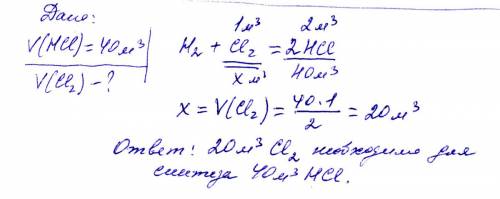 Дано:
V(HCl)=40м³
V(Cl₂)-?
1м³ 2м³
H₂ + Cl₂ = 2HCl
xм³ 40м³
x = V(Cl₂) = 40·1/2 = 20м³
Ответ: 20м³ Cl₂ необходимо для
синтеза 40м³ HCl.